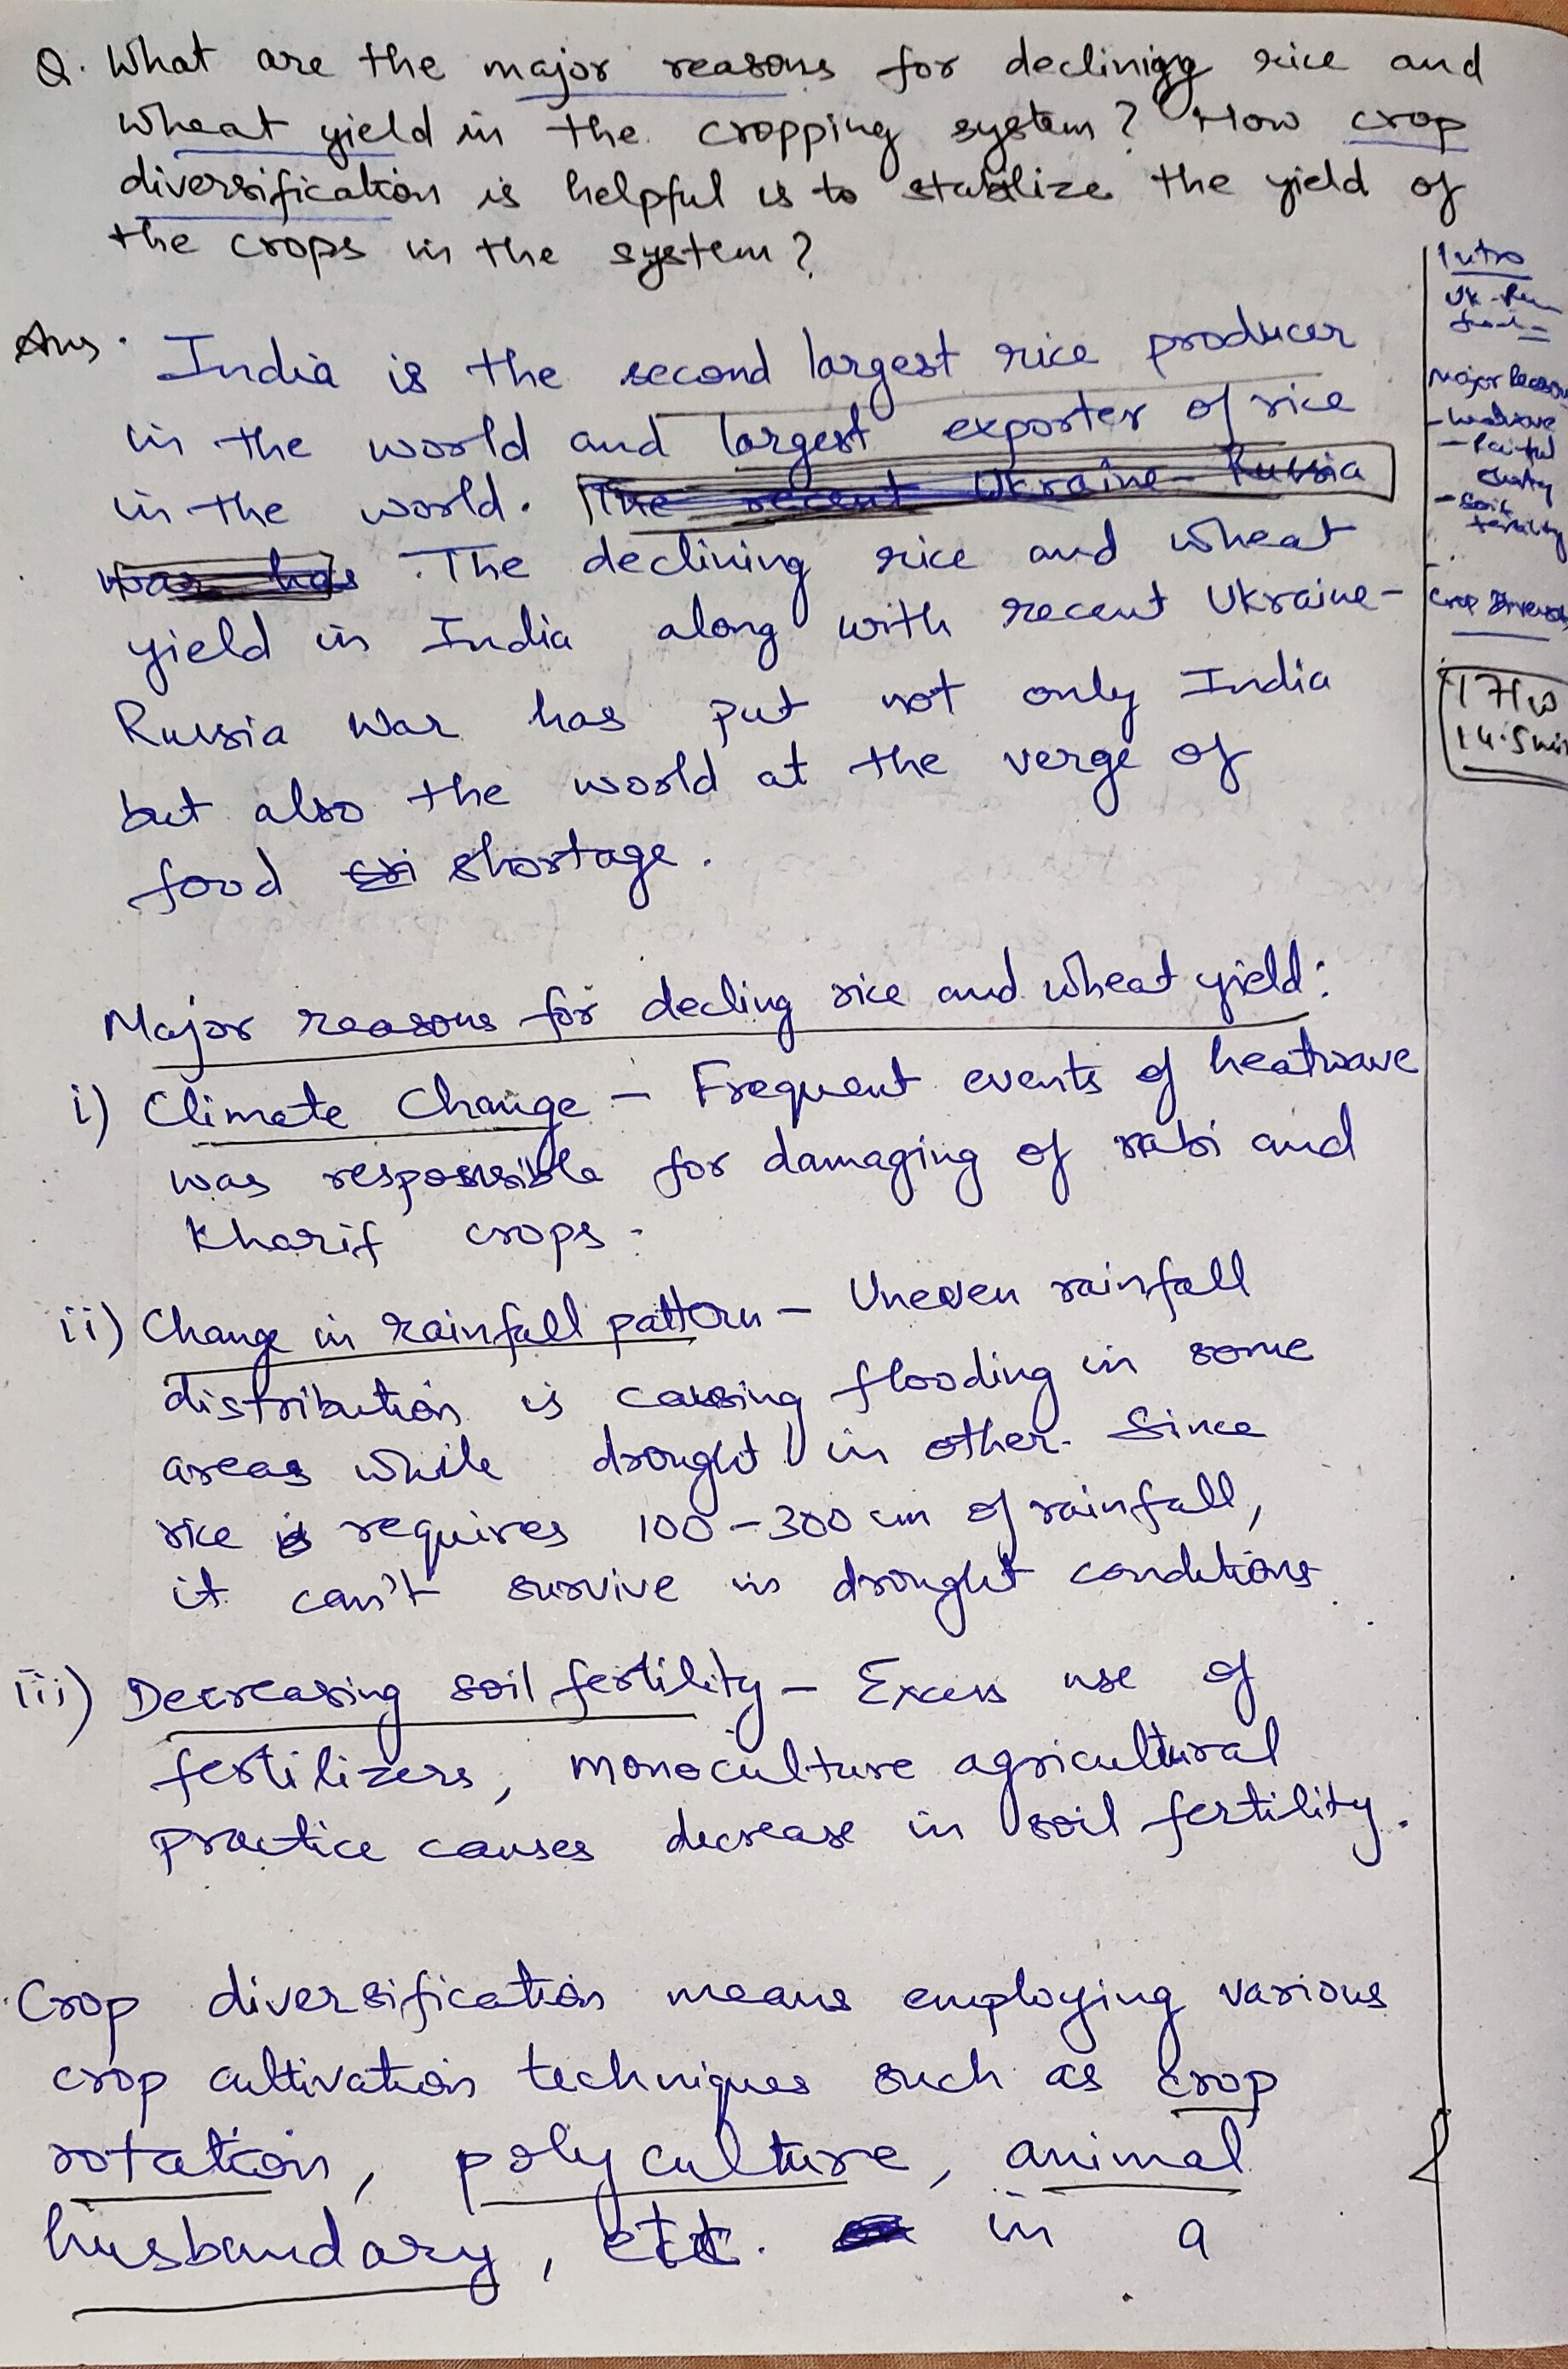 Q. What are the major reasons for declining rice and
wheat yield in the cropping system? How crop
diversification is helpful is to stabilize the yield of
the crops in the system?
Ans. India is the second largest rice producer
in the world and largest exporter of rice
in the world. The recent Ukraine-Russia
war has The declining rice and wheat
yield in India along with recent Ukraine-
Russia war has put not only India
but also the world at the verge of
food cri shortage.
Major reasons for decling rice and wheat yield:
i) Climate Change - Frequent events of heatwave
was responsible for damaging of rabi and
Kharif crops.
ii) Change in rainfall pattern - Uneven rainfall
distribution is causing flooding in some
areas while drought in other. Since
rice is requires 100-300 cm of rainfall,
it can't survive in drought conditions.
iii) Decreasing soil fertility - Excess use of
fertilizers, monoculture agricultural
practice causes decrease in soil fertility.
Crop diversification means employing various
crop cultivation techniques such as crop
rotation, polyculture, animal
husbandary, etc. in a
Intro
Major Reason
- heatwave
- Soil
fertility
Crop